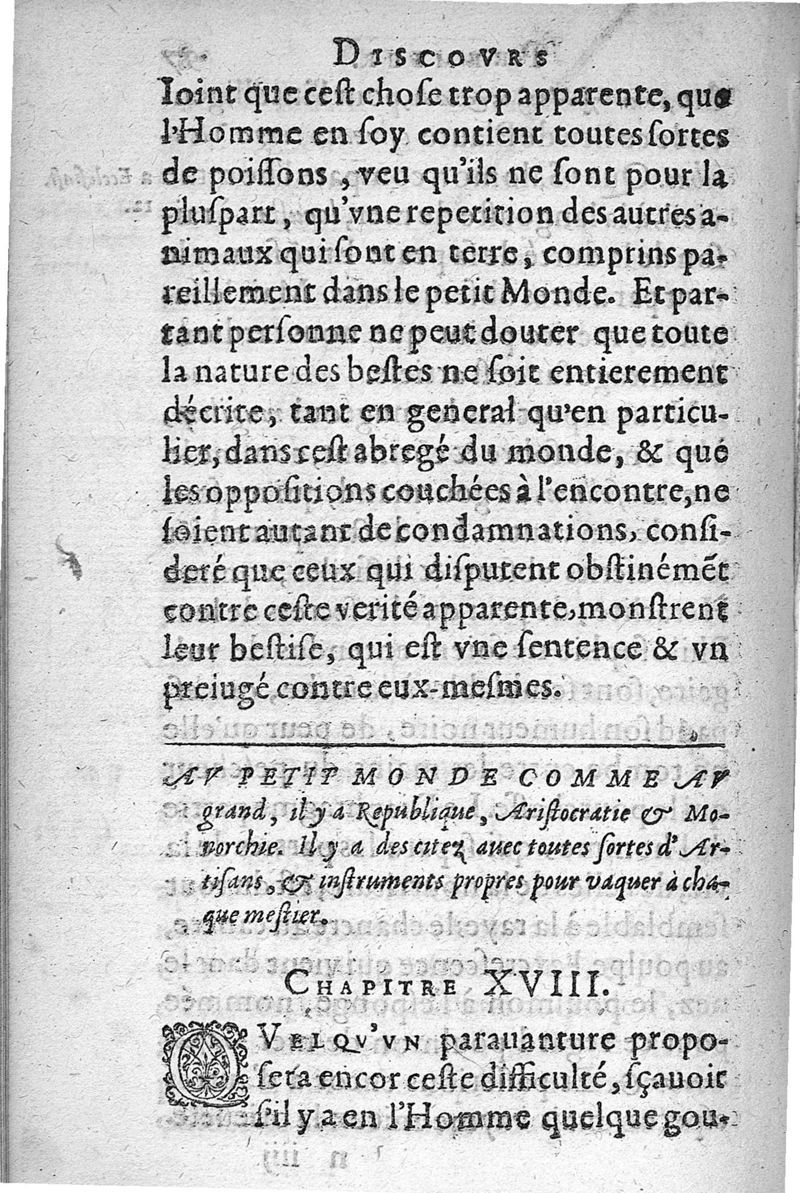 DISCOVRS
Ioint que cest chose trop apparente, que
l'Homme en soy contient toutes sortes
de poissons, veu qu'ils ne sont pour la
pluspart, qu'vne repetition des autres a-
nimaux qui sont en terre, comprins pa-
reillement dans le petit Monde. Et par-
tant personne ne peut douter que toute
la nature des bestes ne soit entierement
décrite, tant en general qu'en particu-
lier, dans cest abregé du monde, & que
les oppositions couchées à l'encontre, ne
soient autant de condamnations, consi-
deré que ceux qui disputent obstinémẽt
contre ceste verité apparente, monstrent
leur bestise, qui est vne sentence & vn
preiugé contre eux-mesmes.
AV PETIT MONDE COMME AV
grand, il y a Republique, Aristocratie & Mo-
norchie. Il y a des citez auec toutes sortes d'Ar-
tisans, & instruments propres pour vaquer à cha-
que mestier.
CHAPITRE XVIII.
QVELQV'VN parauanture propo-
sera encor ceste difficulté, sçauoir
s'il y a en l'Homme quelque gou-